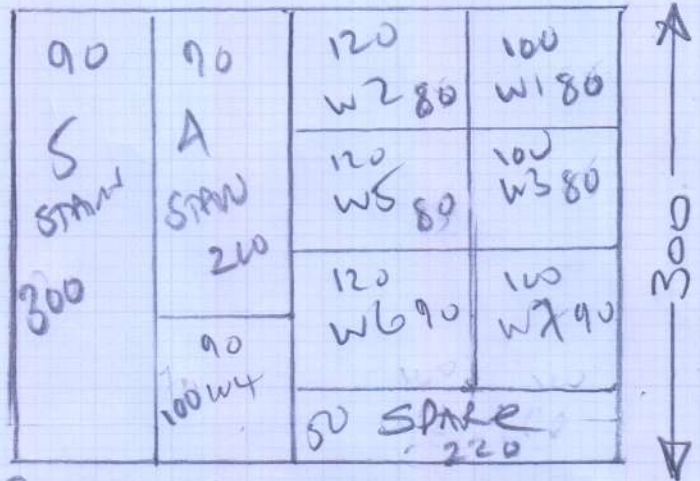 90
S
STAIN
300
90
A
STAIN
200
90
100 W4
120
W2 80
100
W1 80
120
W5 80
100
W3 80
120
W6 90
100
W7 90
50 SPARE
220
300